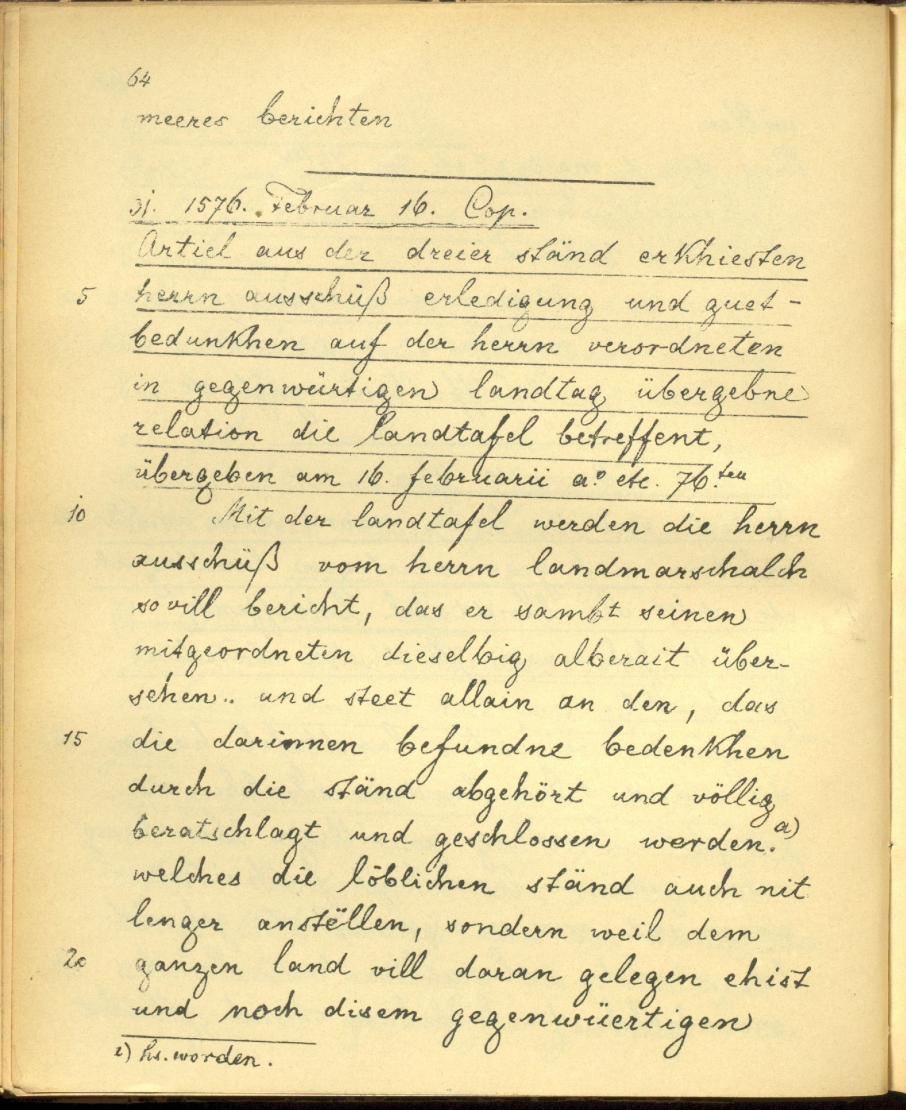 64
meeres berichten
31. 1576. Februar 16. Cop.
Articl aus der dreier ständ erkhiesten
5 herrn ausschüß erledigung und guet-
bedunkhen auf der herrn verordneten
in gegenwürtigen landtag übergebne
relation die landtafel betreffent,
übergeben am 16. februarii a.º etc. 76.ten
10 Mit der landtafel werden die herrn
ausschüß vom herrn landmarschalch
sovill bericht, das er sambt seinen
mitgeordneten dieselbig alberait über-
sehen.. und steet allain an den, das
15 die darinnen befundne bedenkhen
durch die ständ abgehört und völlig
beratschlagt und geschlossen werden.a)
welches die löblichen ständ auch nit
lenger anstëllen, sondern weil dem
20 ganzen land vill daran gelegen ehist
und noch disem gegenwüertigen
a) hs. worden.